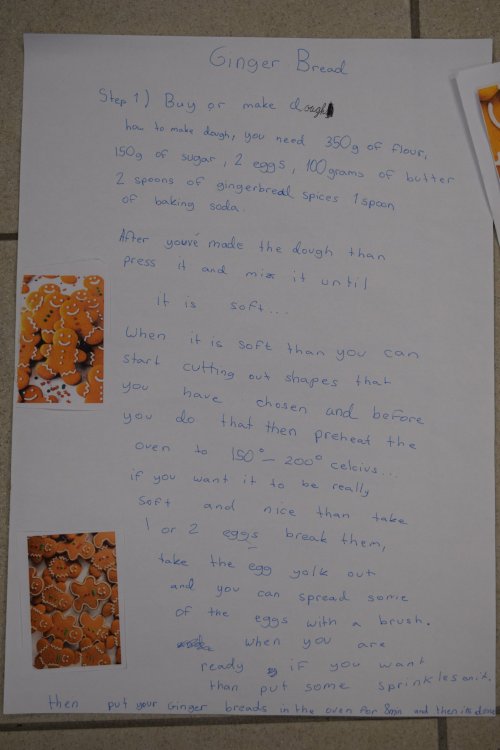 Ginger Bread
Step 1) Buy or make dough
how to make dough, you need 350g of flour,
150g of sugar, 2 eggs, 100grams of butter
2 spoons of gingerbread spices 1 spoon
of baking soda.
After youvé made the dough than
press it and mix it until
it is soft...
When it is soft than you can
start cutting out shapes that
you have chosen and before
you do that then preheat the
oven to 150°-200° celcius...
if you want it to be really
soft and nice than take
1 or 2 eggs break them,
take the egg yolk out
and you can spread some
of the eggs with a brush.
when you are
ready if you want
than put some sprinkles on it.
then put your Ginger breads in the oven for 8min and then its done